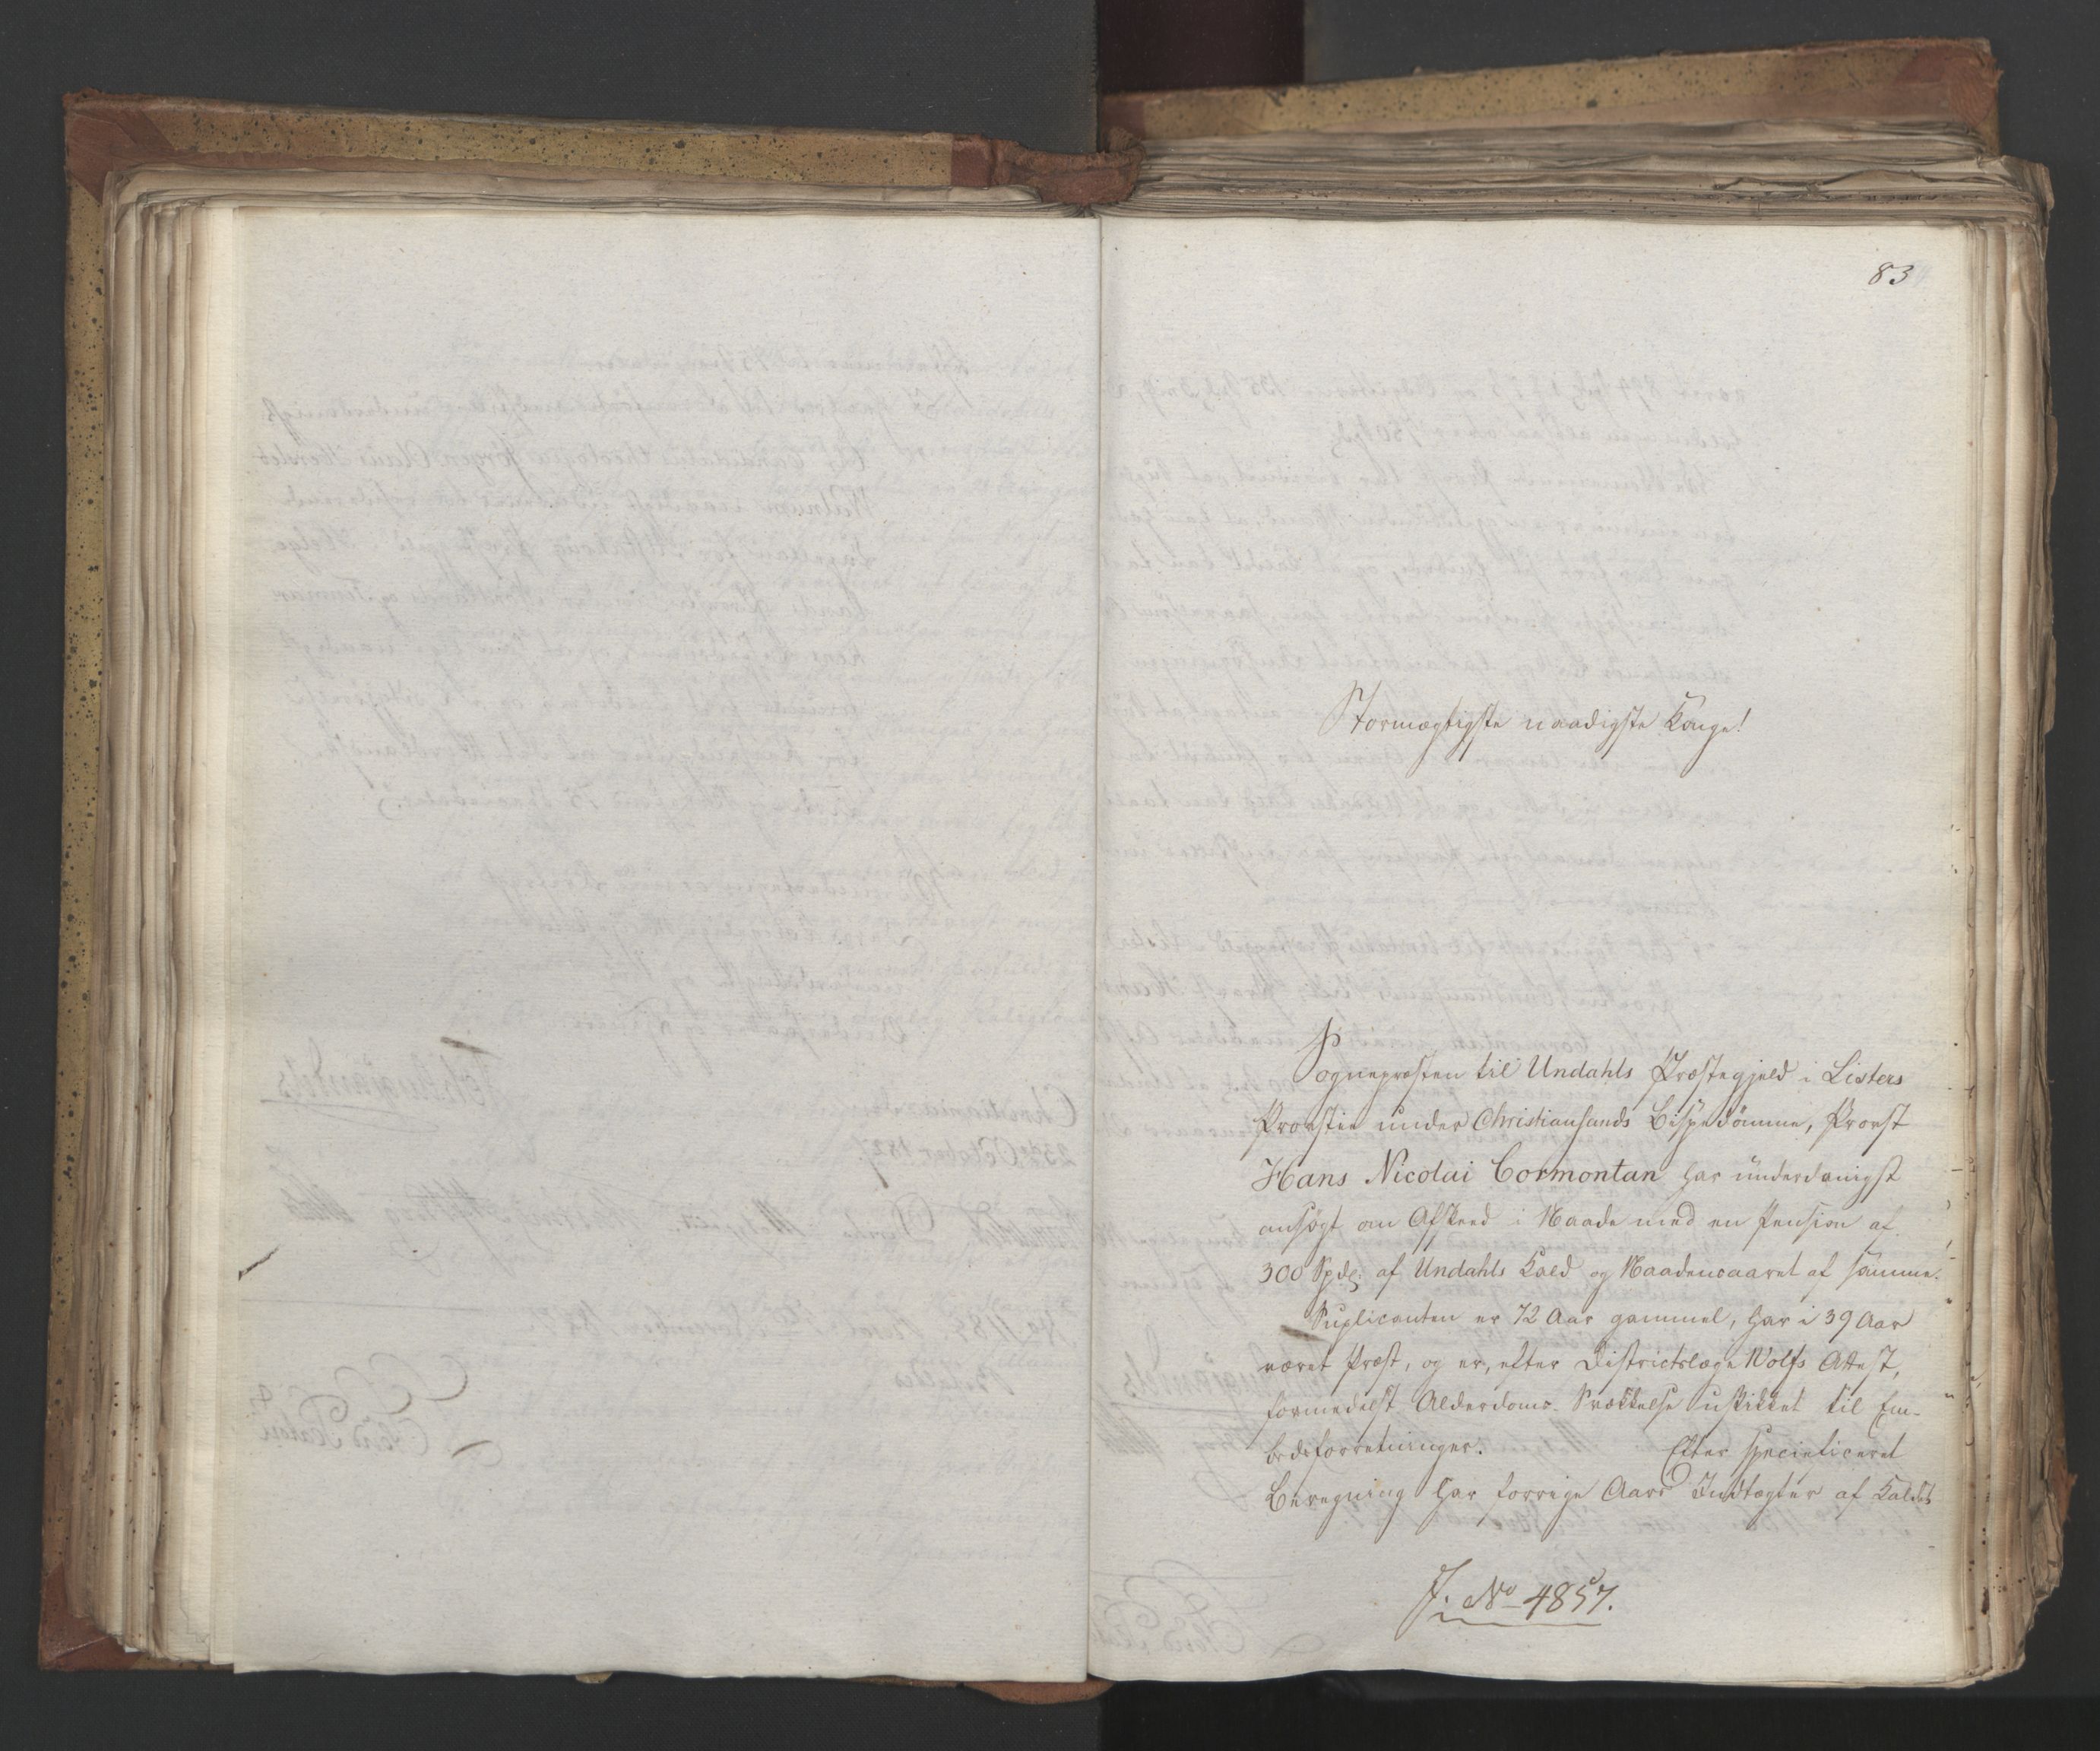 83
Stormægtigste naadigste Konge!
Sognepræsten til Undahls Præstegjeld i Listers
Provstie under Christiansands Bispedömme, Provst
Hans Nicolai Cormontan har underdanigst
ansögt om Afskeed i Naade med en Pension af
300 Spdlr af Undahls Kald og Naadensaaret af samme.
Suplicanten er 72 Aar gammel, har i 39 Aar
været Præst, og er, efter Districtslæge Wolfs Attest,
formedelst Alderdoms Svækkelse uskikket til Em-
bedsforretninger. Efter specificeret
Beregning har forrige Aars Indtægter af Kaldet
J. No 4857.